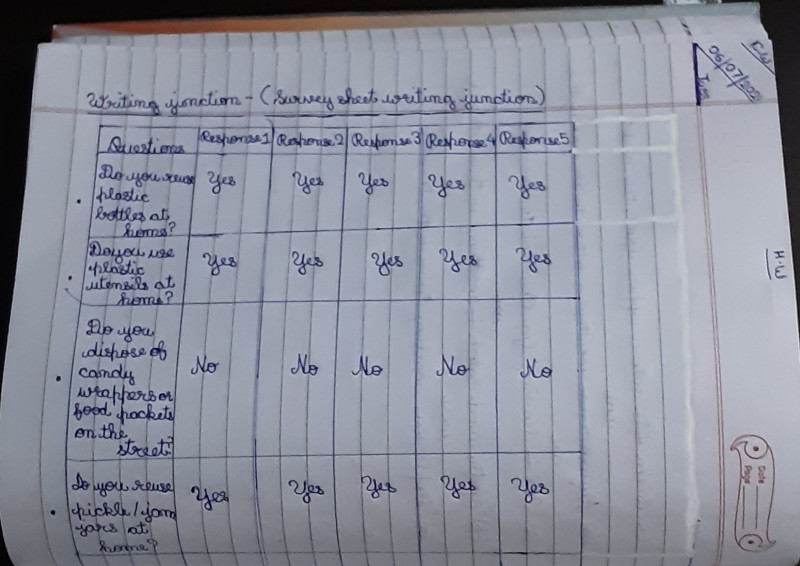 C.W
06/07/202
Tues
Writing junction - (Survey sheet writing junction)
Questions Response1 Response2 Response3 Response4 Response5
Do you reuse Yes Yes Yes Yes Yes
plastic
bottles at
home?
Do you use Yes Yes Yes Yes Yes
plastic
utensils at
home?
Do you
dispose of
candy No No No No No
wrappers or
food packets
on the
street?
Do you reuse Yes Yes Yes Yes Yes
pickle/jam
jars at
home?
H.W
Date
Page